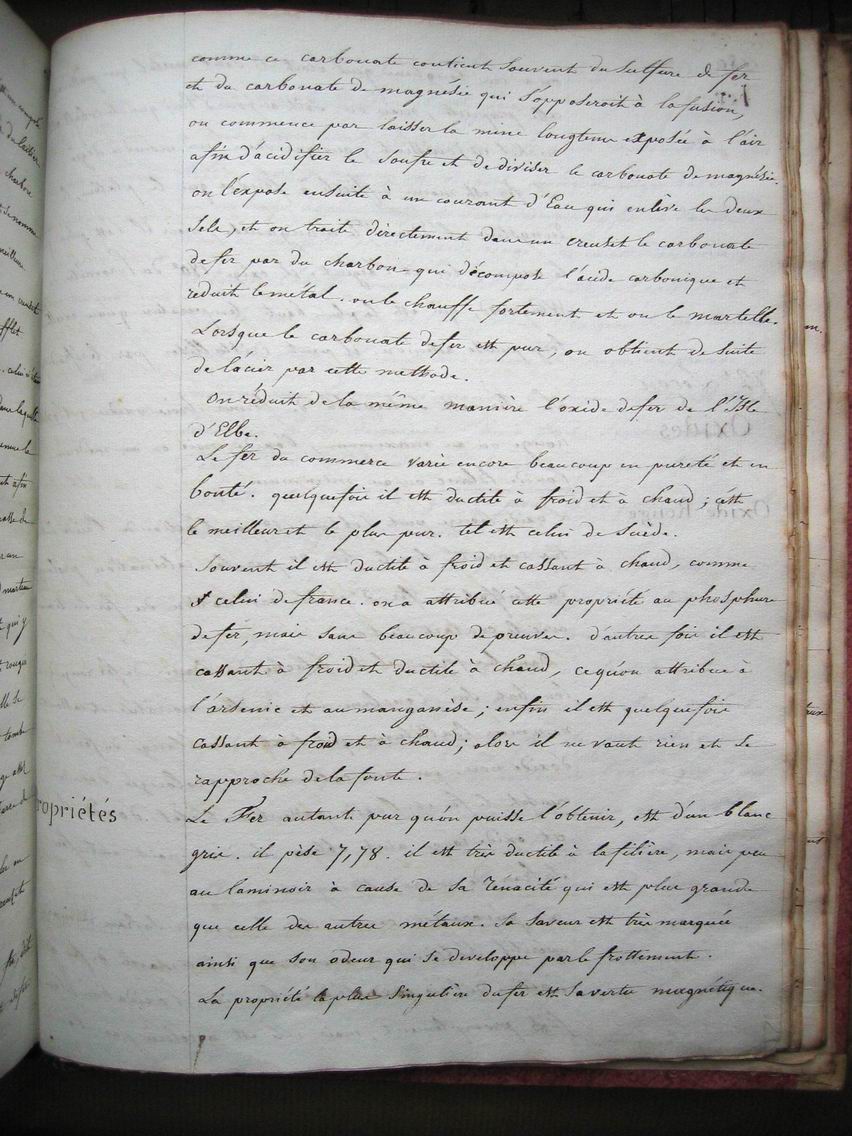 comme ce carbonate contient souvent du sulfure de fer
et du carbonate de magnésie qui s'opposeroit à la fusion,
on commence par laisser la mine longtems exposée à l'air
afin d'acidifier le soufre et de diviser le carbonate de magnésie.
on l'expose ensuite à un courant d'Eau qui enlève les deux
sels, et on traite directement dans un creuset le carbonate
de fer par du charbon qui décompose l'acide carbonique et
réduit le métal. on le chauffe fortement et on le martelle.
Lorsque le carbonate de fer est pur, on obtient de suite
de l'acier par cette methode.
On réduit de la même manière l'oxide de fer de l'Isle
d'Elbe.
Le fer du commerce varie encore beaucoup en pureté et en
bonté. quelquefois il est ductile à froid et à chaud; c'est
le meilleur et le plus pur. tel est celui de Suède.
Souvent il est ductile à froid et cassant à chaud, comme
celui de france. on a attribué cette propriété au phosphure
de fer, mais sans beaucoup de preuves. d'autres fois il est
cassant à froid et ductile à chaud, ce qu'on attribue à
l'arsenic et au manganèse; enfin il est quelquefois
cassant à froid et à chaud; alors il ne vaut rien et se
rapproche de la fonte.
ropriétés
Le Fer autant pur qu'on puisse l'obtenir, est d'un blanc
gris. il pèse 7,78. il est très ductile à la filière, mais peu
au laminoir à cause de sa ténacité qui est plus grande
que celle des autres métaux. sa saveur est très marquée
ainsi que son odeur qui se developpe par le frottement.
La propriété la plus singulière du fer est sa vertu magnétique.